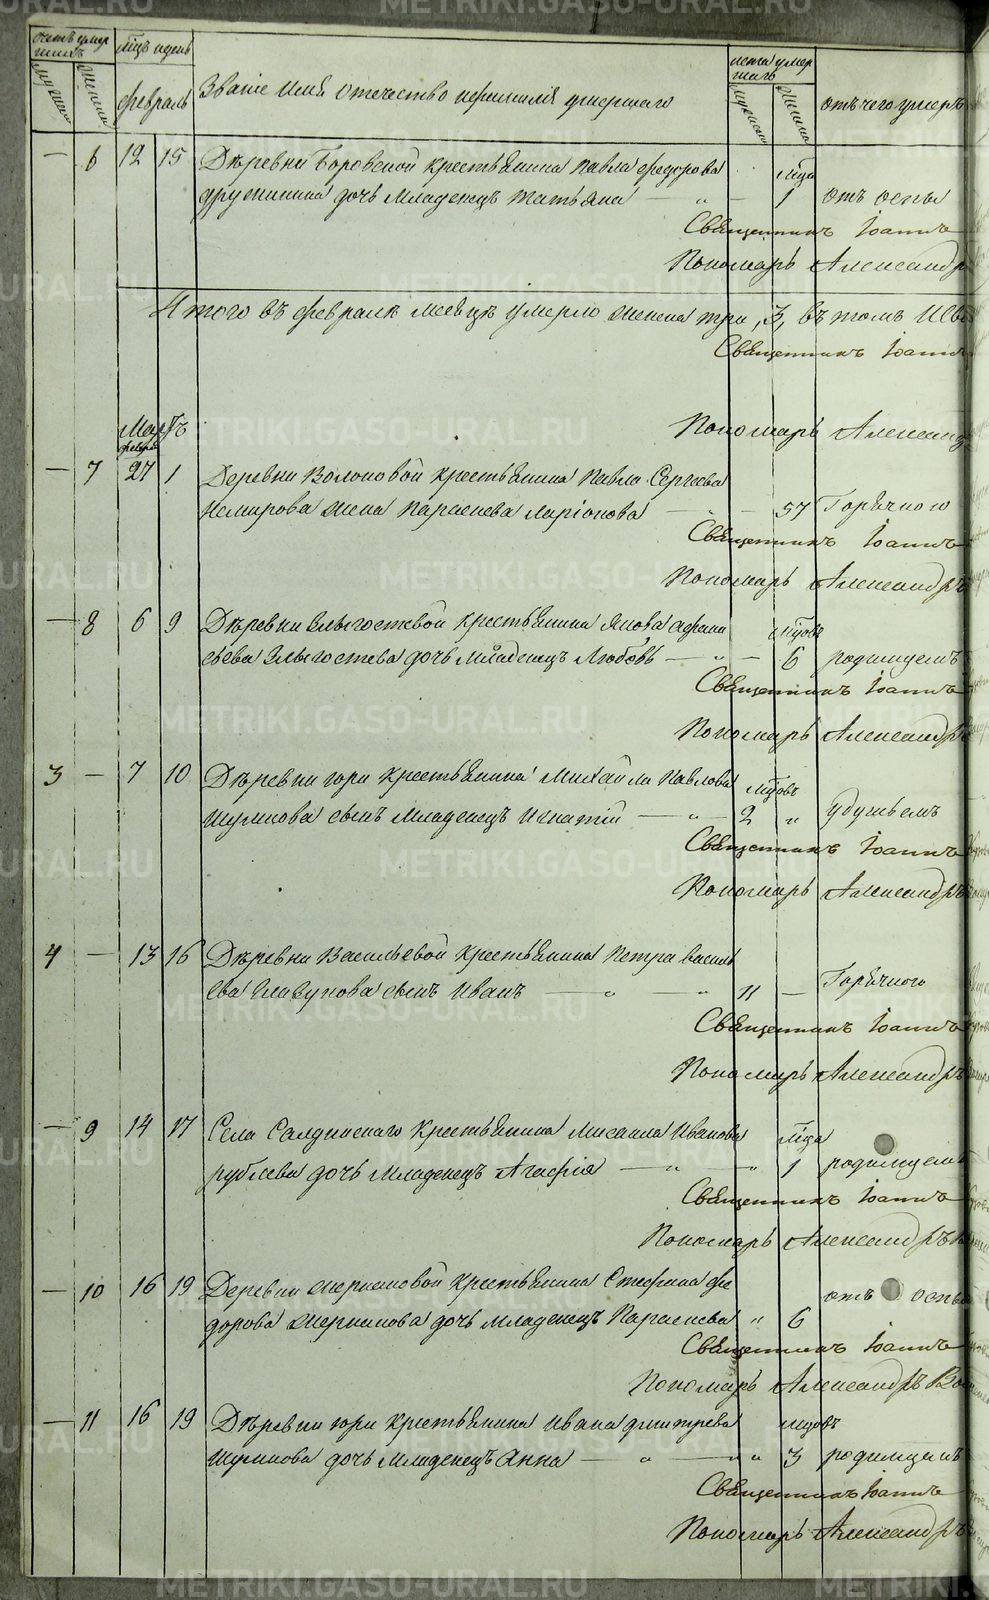 счетъ умер шихъ
мцъ и день
лета умер шагъ
Мужеска
Женска
февраль
Званіе имя отечество и фамилія умершаго
Мужеска
Женска
отъ чего умеръ
— 6 12 15 Деревни Боровской крестьянина Павла федорова мца
дружинина дочь младенецъ татьяна — „ — 1 отъ оспы
Священникъ Іоаннъ
Пономарь Александръ
Итого въ февралѣ месяцѣ умерло женска три, 3, въ томъ
Священникъ Іоаннъ
Пономарь Александ
Мартъ
февра
— 7 27 1 Деревни крестьянина Павла Сергеева
Немирова жена Параскева Ларіонова — „ — 57 Горячкою
Священникъ Іоаннъ
Пономарь Александръ
— 8 6 9 Деревни Злыгостевой крестьянина Якова афана мцовъ
сьева Злыгостева дочь младенецъ Любовь — „ — 6 родимцемъ
Священникъ Іоаннъ
Пономарь Александръ
3 — 7 10 Деревни гори крестьянина Михайла Павлова мцовъ
Шумкова сынъ младенецъ Игнатій — „ — 2 „ удушьемъ
Священникъ Іоаннъ
Пономарь Александръ
4 — 13 16 Деревни Васильевой крестьянина Петра василь
ева сынъ Иванъ — „ „ 11 — Горячкою
Священникъ Іоаннъ
Пономарь Александръ
— 9 14 17 Села Салдинскаго крестьянина Мисаила Иванова мца
рублева дочь младенецъ Агафія — „ „ 1 родимцемъ
Священникъ Іоаннъ
Пономарь Александръ
— 10 16 19 Деревни крестьянина Стефана фе отъ оспы
дорова дочь младенецъ Параскева „ 6
Священникъ Іоаннъ
Пономарь Александръ
— 11 16 19 Деревни гори крестьянина Ивана дмитрева мцовъ
Шумкова дочь младенецъ Анна — „ — „ „ 3 родимцемъ
Священникъ Іоаннъ
Пономарь Александръ
METRIKI.GASO-URAL.RU